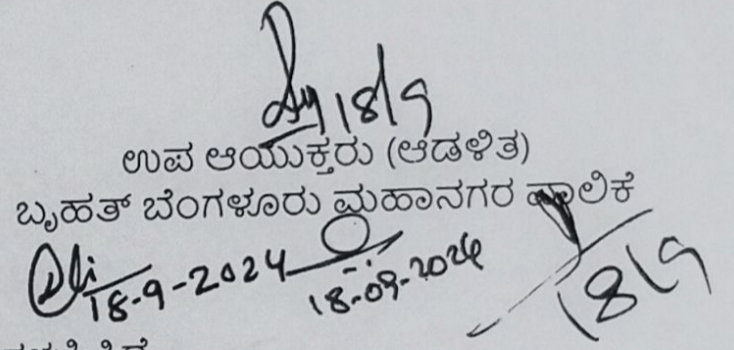 18/9
ಉಪ ಆಯುಕ್ತರು (ಆಡಳಿತ)
ಬೃಹತ್ ಬೆಂಗಳೂರು ಮಹಾನಗರ ಪಾಲಿಕೆ
18-9-2024 18-09-2024 18/9